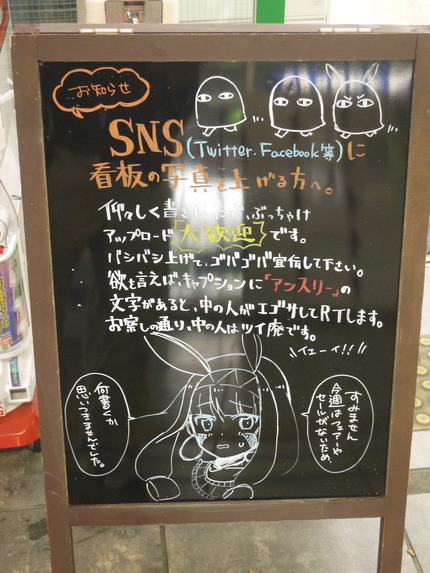 お知らせ
SNS(Twitter・Facebook等)に
看板の写真を上げる方へ。
仰々しく書きましたが、ぶっちゃけ
アップロード大歓迎です。
バシバシ上げて、ゴバゴバ宣伝して下さい。
欲を言えば、キャプションに「アンスリー」の
文字があると、中の人がエゴサしてRTします。
お察しの通り、中の人はツイ廃です。
\イェーィ!!/
すみません
今週はフェアーや
セールがないため、
何書くか
思いつきませんでした。